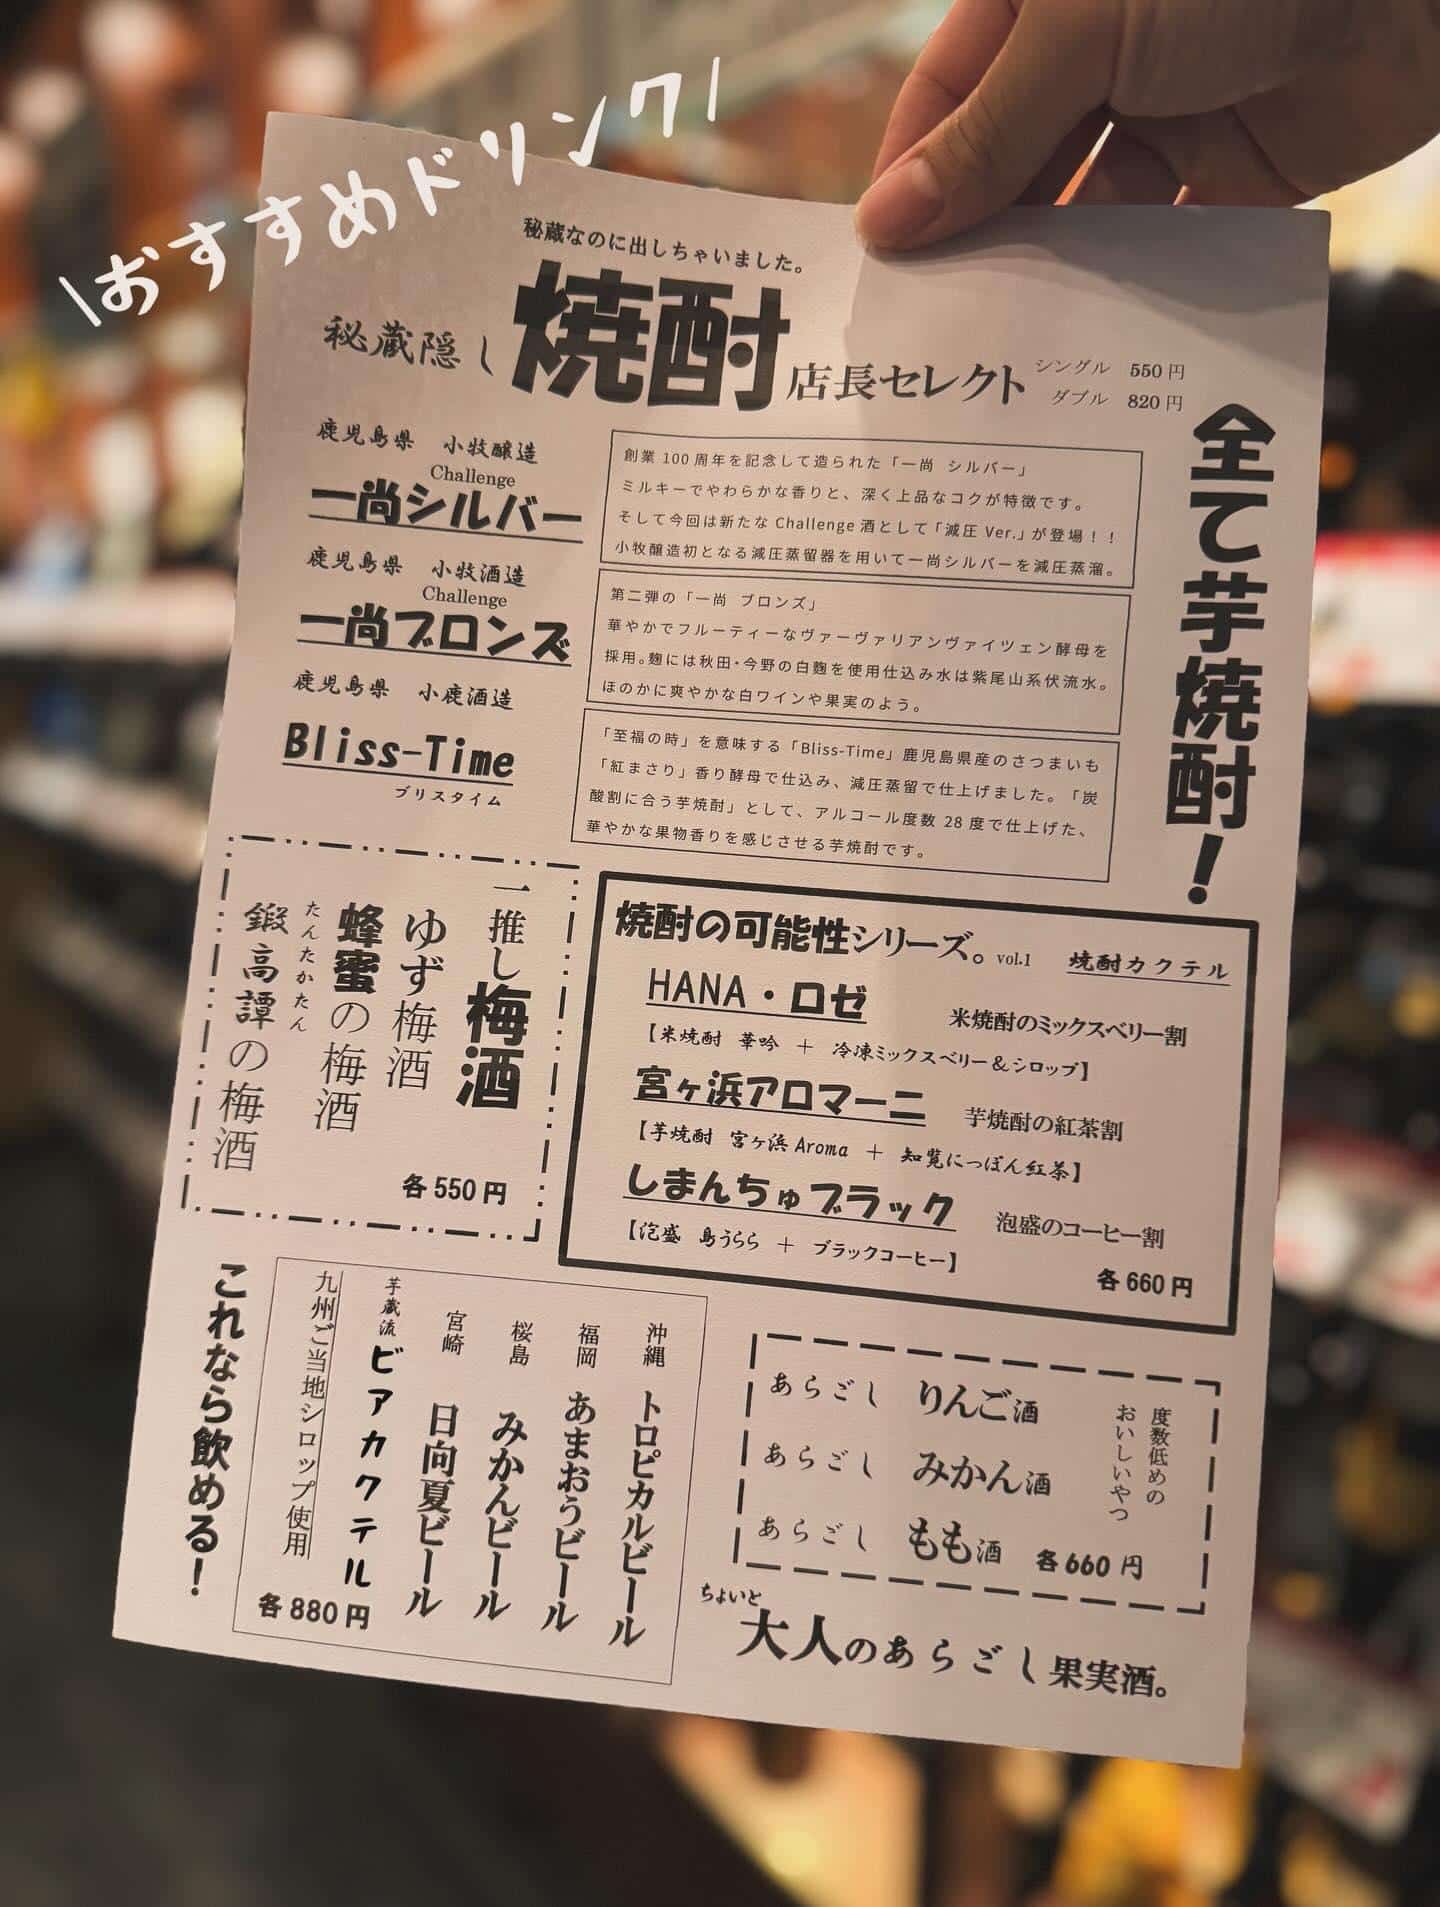 \おすすめドリンク/
秘蔵なのに出しちゃいました。
秘蔵隠し 焼酎 店長セレクト
シングル 550円
ダブル 820円
全て芋焼酎！
鹿児島県 小牧醸造
Challenge
一尚シルバー
創業100周年を記念して造られた「一尚 シルバー」
ミルキーでやわらかな香りと、深く上品なコクが特徴です。
そして今回は新たなChallenge酒として「減圧Ver.」が登場！！
小牧醸造初となる減圧蒸留器を用いて一尚シルバーを減圧蒸溜。
鹿児島県 小牧酒造
Challenge
一尚ブロンズ
第二弾の「一尚 ブロンズ」
華やかでフルーティーなヴァーヴァリアンヴァイツェン酵母を
採用。麹には秋田・今野の白麹を使用仕込み水は紫尾山系伏流水。
ほのかに爽やかな白ワインや果実のよう。
鹿児島県 小鹿酒造
Bliss-Time
ブリスタイム
「至福の時」を意味する「Bliss-Time」鹿児島県産のさつまいも
「紅まさり」香り酵母で仕込み、減圧蒸留で仕上げました。「炭
酸割に合う芋焼酎」として、アルコール度数28度で仕上げた、
華やかな果物香りを感じさせる芋焼酎です。
一推し梅酒
ゆず梅酒
蜂蜜の梅酒
たんたかたん
鍛高譚の梅酒
各550円
焼酎の可能性シリーズ。vol.1 焼酎カクテル
HANA・ロゼ 米焼酎のミックスベリー割
【米焼酎 華吟 ＋ 冷凍ミックスベリー＆シロップ】
宮ヶ浜アロマーニ 芋焼酎の紅茶割
【芋焼酎 宮ヶ浜Aroma ＋ 知覧にっぽん紅茶】
しまんちゅブラック 泡盛のコーヒー割
【泡盛 島うらら ＋ ブラックコーヒー】
各660円
沖縄 トロピカルビール
福岡 あまおうビール
桜島 みかんビール
宮崎 日向夏ビール
芋蔵流 ビアカクテル
九州ご当地シロップ使用
各880円
これなら飲める！
度数低めの
おいしいやつ
あらごし りんご酒
あらごし みかん酒
あらごし もも酒 各660円
ちょいと
大人のあらごし果実酒。